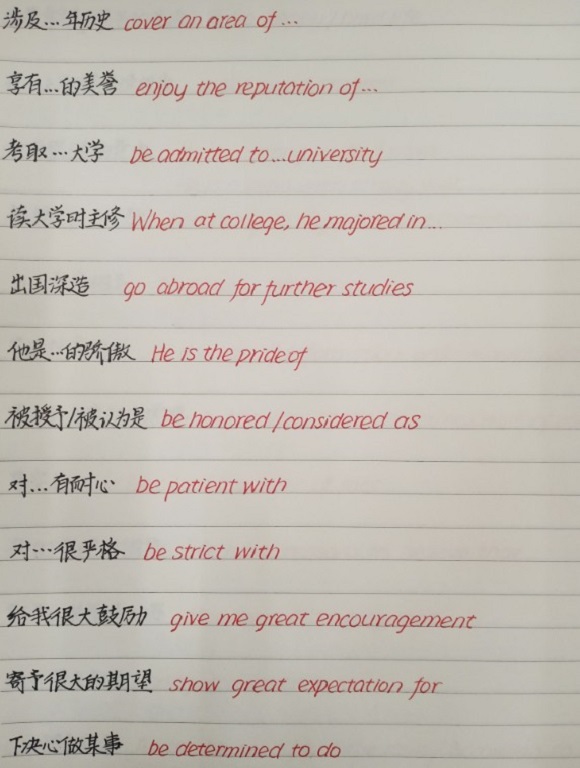 涉及…年历史 cover an area of …
享有…的美誉 enjoy the reputation of…
考取…大学 be admitted to…university
读大学时主修 When at college, he majored in…
出国深造 go abroad for further studies
他是…的骄傲 He is the pride of
被授予/被认为是 be honored/considered as
对…有耐心 be patient with
对…很严格 be strict with
给我很大鼓励 give me great encouragement
寄予很大的期望 show great expectation for
下决心做某事 be determined to do